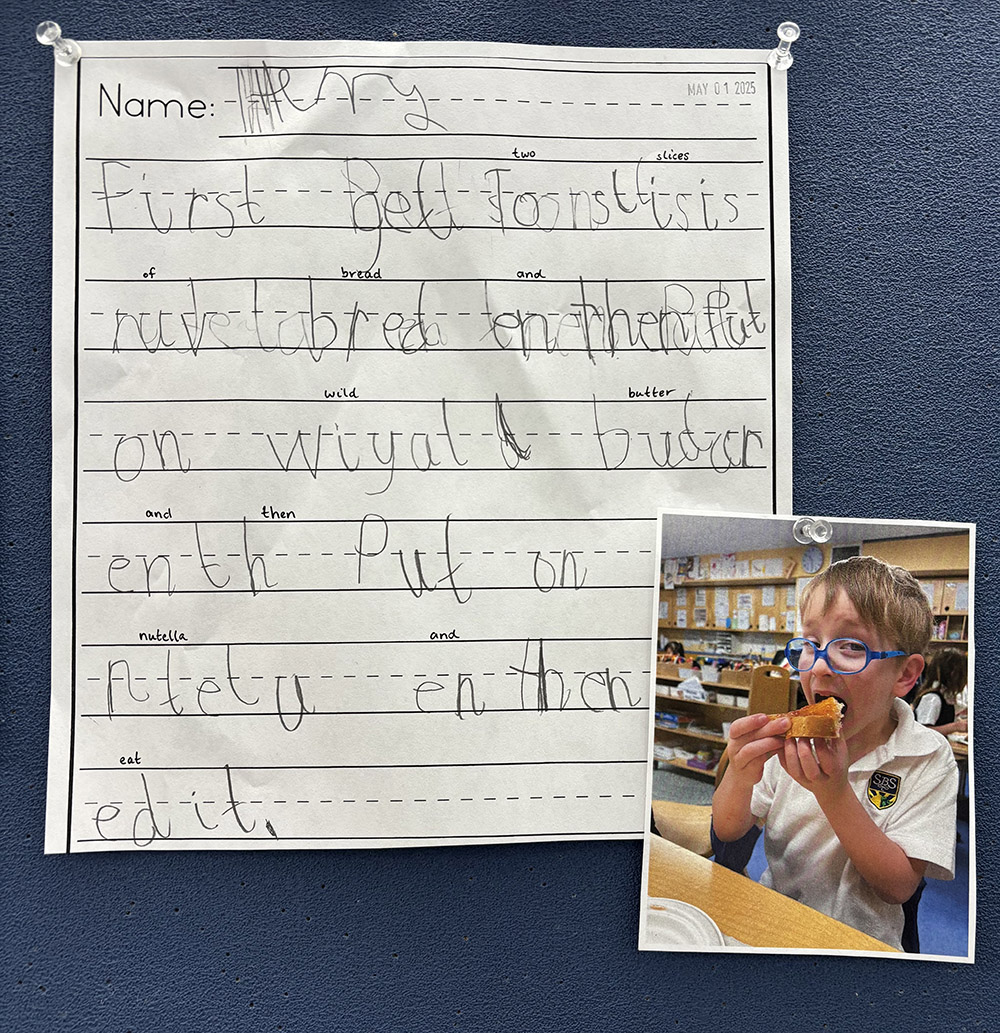 Name: Henry
MAY 01 2025
two slices
First Get
of bread and
bred en then Put
wild butter
on wiyal budar
and then
en th Put on
nutella and
ntetu en then
eat
ed it.
SBS